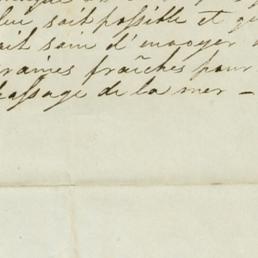 plus soit possible et qu
ait soin d'envoyer
graines fraîches pour
passage de la mer —